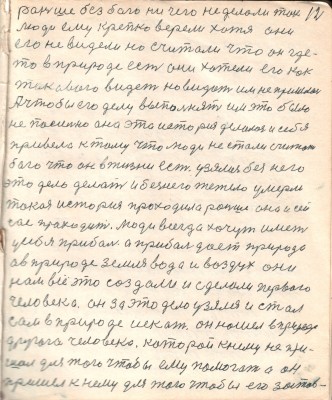 раньше без баго ни чего не делали так 12
люди ему крепко верели хотя они
его не видели но считали что он где-
то в природе есть они хотели его как
такового видеть но видит им не пришлось
А чтобы его делу выполнять им это было
не посильно она это история делалась и себя
привела к тому что люди не стали считать
баго что он в жизни есть. узялися без него
это дело делать и без него жетью умерли
такая история проходила раньше она и сей
час праходит. люди всегда хочут имет
у себя прибал а прибал дает природа
а в природе земля вода и воздух они
нам всё это создали и сделали первого
человека. он за это дело узялся и стал
сам в природе искат. он нашел в природе
другога человека. каторой к нему не при-
ехал для того чтобы ему помогат а он
пришел к нему для того чтобы его застав-